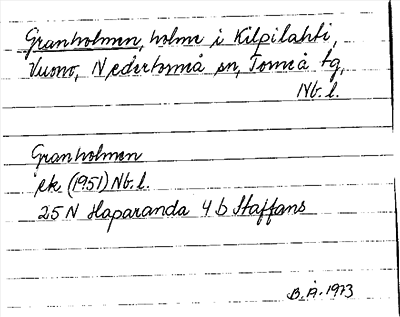 Granholmen, holme i Kilpilahti,
Vuono, Nedertorneå sn, Torneå tg,
Nb. l.
Granholmen
ek (1951) Nb. l.
25 N Haparanda 4 b Staffans
B. Å. 1973